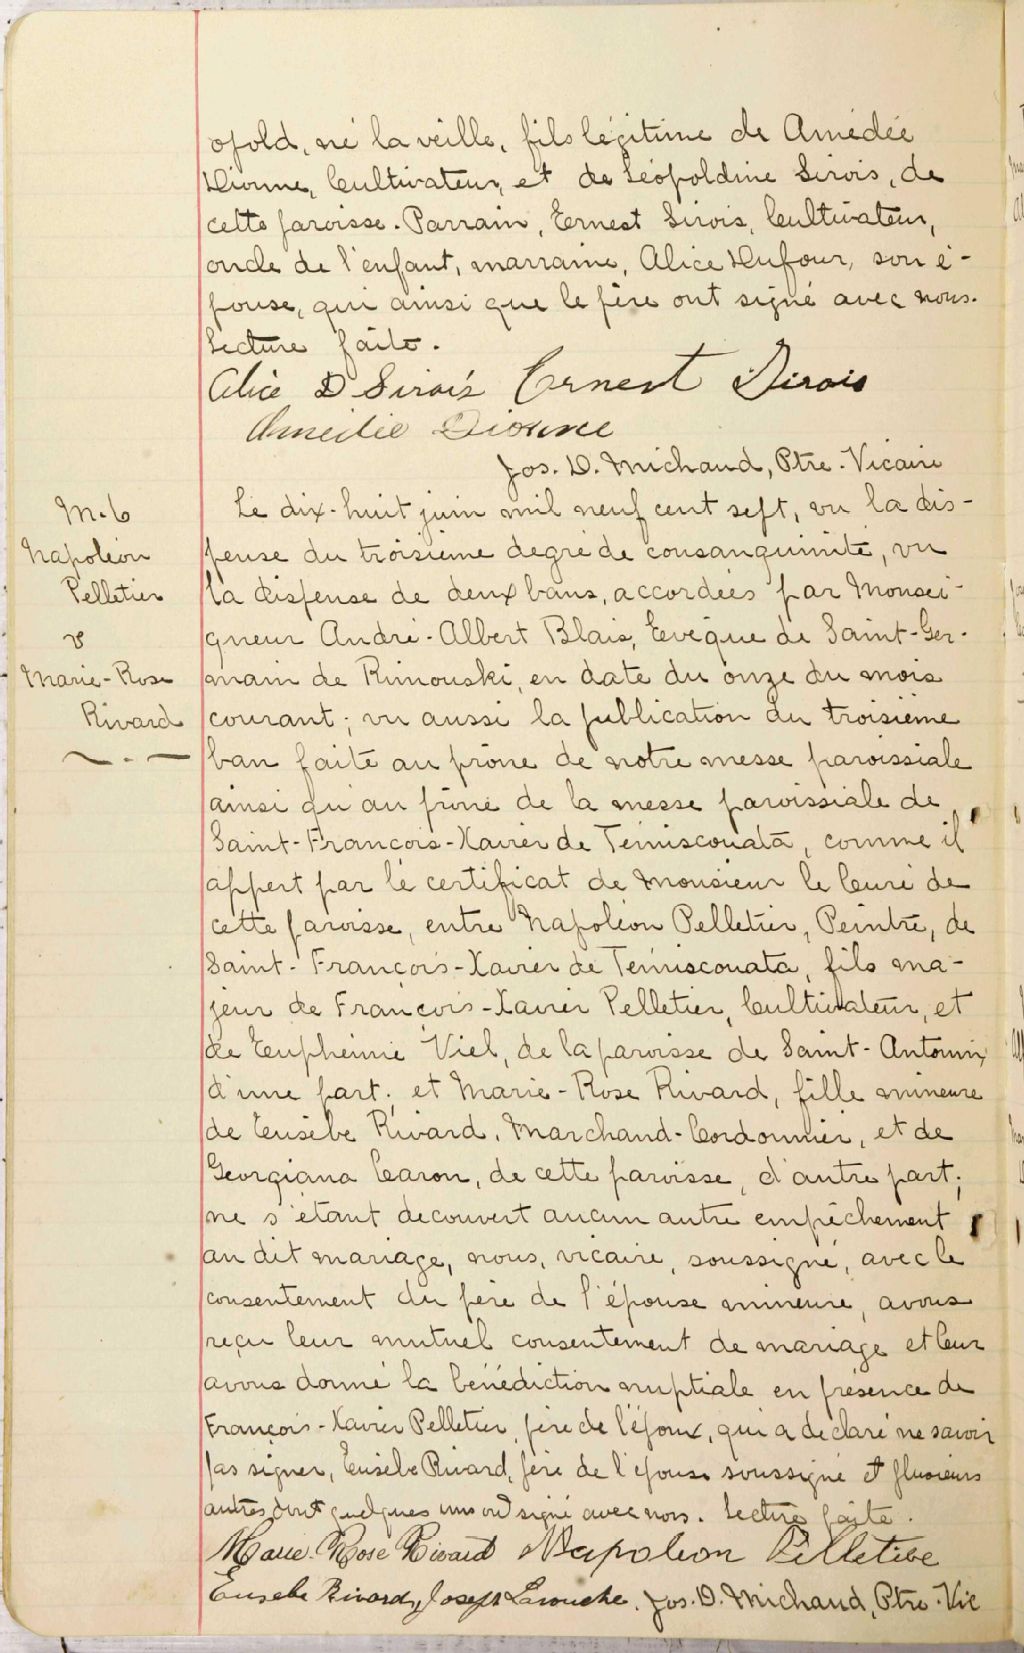 opold, né la veille, fils légitime de Amédée
Dionne, Cultivateur, et de Léopoldine Sirois, de
cette paroisse. Parrain, Ernest Sirois, Cultivateur,
oncle de l'enfant, marraine, Alice Dufour, son é-
pouse, qui ainsi que le père ont signé avec nous.
Lecture faite.
Alice D Sirois Ernest Sirois
Amédée Dionne
Jos. D. Michaud, Ptre. Vicaire
M. 6
Napoléon
Pelletier
&
Marie-Rose
Rivard
Le dix-huit juin mil neuf cent sept, vu la dis-
pense du troisième degré de consanguinité, vu
la dispense de deux bans, accordées par Monsei-
gneur André-Albert Blais, Evêque de Saint-Ger-
main de Rimouski, en date du onze du mois
courant; vu aussi la publication du troisième
ban faite au prône de notre messe paroissiale
ainsi qu'au prône de la messe paroissiale de
Saint-François-Xavier de Témiscouata, comme il
appert par le certificat de Monsieur le Curé de
cette paroisse, entre Napoléon Pelletier, Peintre, de
Saint-François-Xavier de Témiscouata, fils ma-
jeur de François-Xavier Pelletier, Cultivateur, et
de Euphémie Viel, de la paroisse de Saint-Antonin,
d'une part; et Marie-Rose Rivard, fille mineure
de Eusèbe Rivard, Marchand-Cordonnier, et de
Georgiana Caron, de cette paroisse, d'autre part;
ne s'étant découvert aucun autre empêchement
au dit mariage, nous, vicaire, soussigné, avec le
consentement du père de l'épouse mineure, avons
reçu leur mutuel consentement de mariage et leur
avons donné la bénédiction nuptiale en présence de
François-Xavier Pelletier, père de l'époux, qui a déclaré ne savoir
pas signer, Eusèbe Rivard, père de l'épouse soussigné et plusieurs
autres dont quelques uns ont signé avec nous. Lecture faite.
Marie Rose Rivard Napoleon Pelletier
Eusebe Rivard, Joseph Larouche, Jos. D. Michaud, Ptre. Vic